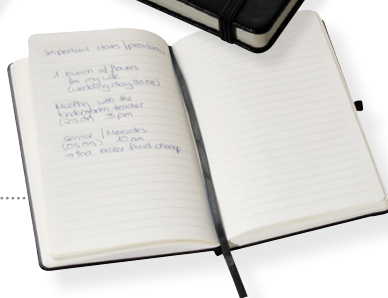 Important dates /
1 bunch of flowers
for my wife
(wedding day 30.05)
Meeting with the
kindergarten teacher
3 pm
service / Mercedes
10 am
→ incl. brake fluid change